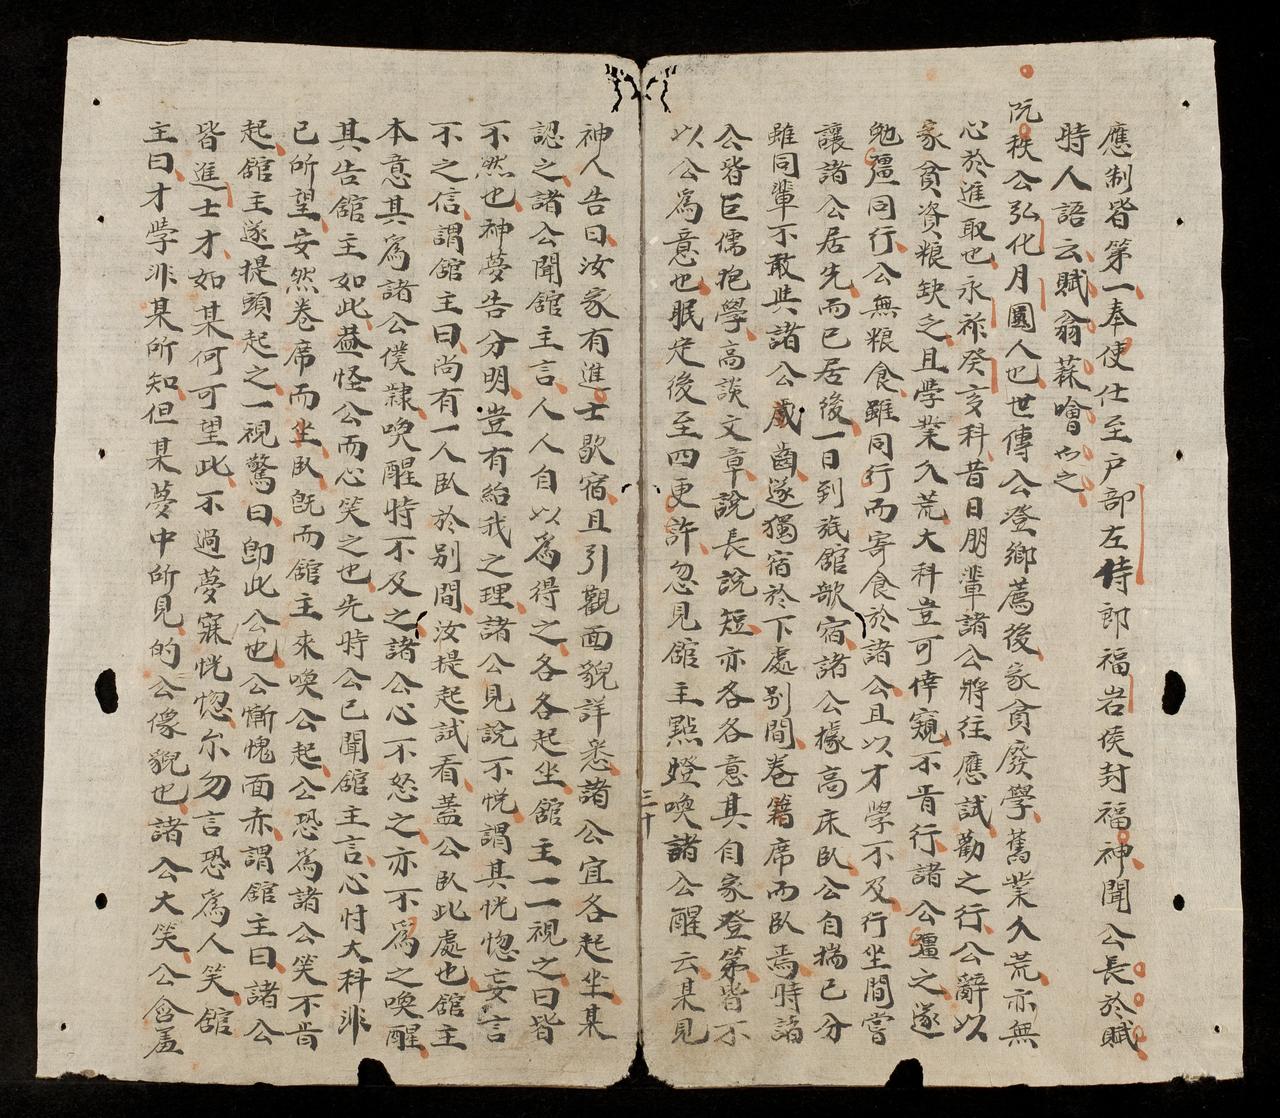 應制皆第一奉使仕至户部左侍郎福岩侯封福神聞公長於賦
時人語云賦翁菻噲也之
阮秩公弘化月圓人也世傳公登鄉薦後家貧廢學舊業久荒亦無
心於進取也永祚癸亥科昔日朋輩諸公將往應試勸之行公辭以
家貧資粮缺乏且學業久荒大科豈可倖窺不肯行諸公彊之遂
勉彊同行公無粮食雖同行而寄食於諸公且以才學不及行坐間嘗
讓諸公居先而已居後一日到旅舘歇宿諸公據高床臥公自揣已分
雖同輩不敢與諸公戲齒遂獨宿於下處別間卷籍席而臥焉時諸
公皆巨儒抱學高談文章說長說短亦各各意其自家登第皆不
以公爲意也眠定後至四更許忽見舘主點燈喚諸公醒云某見
三十
神人告曰汝家有進士歇宿且引觀面貌詳悉諸公宜各起坐某
認之諸公聞舘主言人人自以爲得之各各起坐舘主一一視之曰皆
不然也神夢告分明豈有紿我之理諸公見說不悅謂其恍惚妄言
不之信謂舘主曰尚有一人臥於別間汝提起試看蓋公臥此處也舘主
本意其爲諸公僕隸喚醒時不及之諸公心不怒之亦不爲之喚醒
其告舘主如此蓋怪公而心笑之也先時公已聞舘主言心忖大科非
已所望安然卷席而坐臥旣而舘主來喚公起公恐爲諸公笑不肯
起舘主遂提頭起之一視驚曰卽此公也公慚愧面赤謂舘主曰諸公
皆進士才如某何可望此不過夢寐恍惚尔勿言恐爲人笑舘
主曰才學非某所知但某夢中所見的公像貌也諸公大笑公含羞